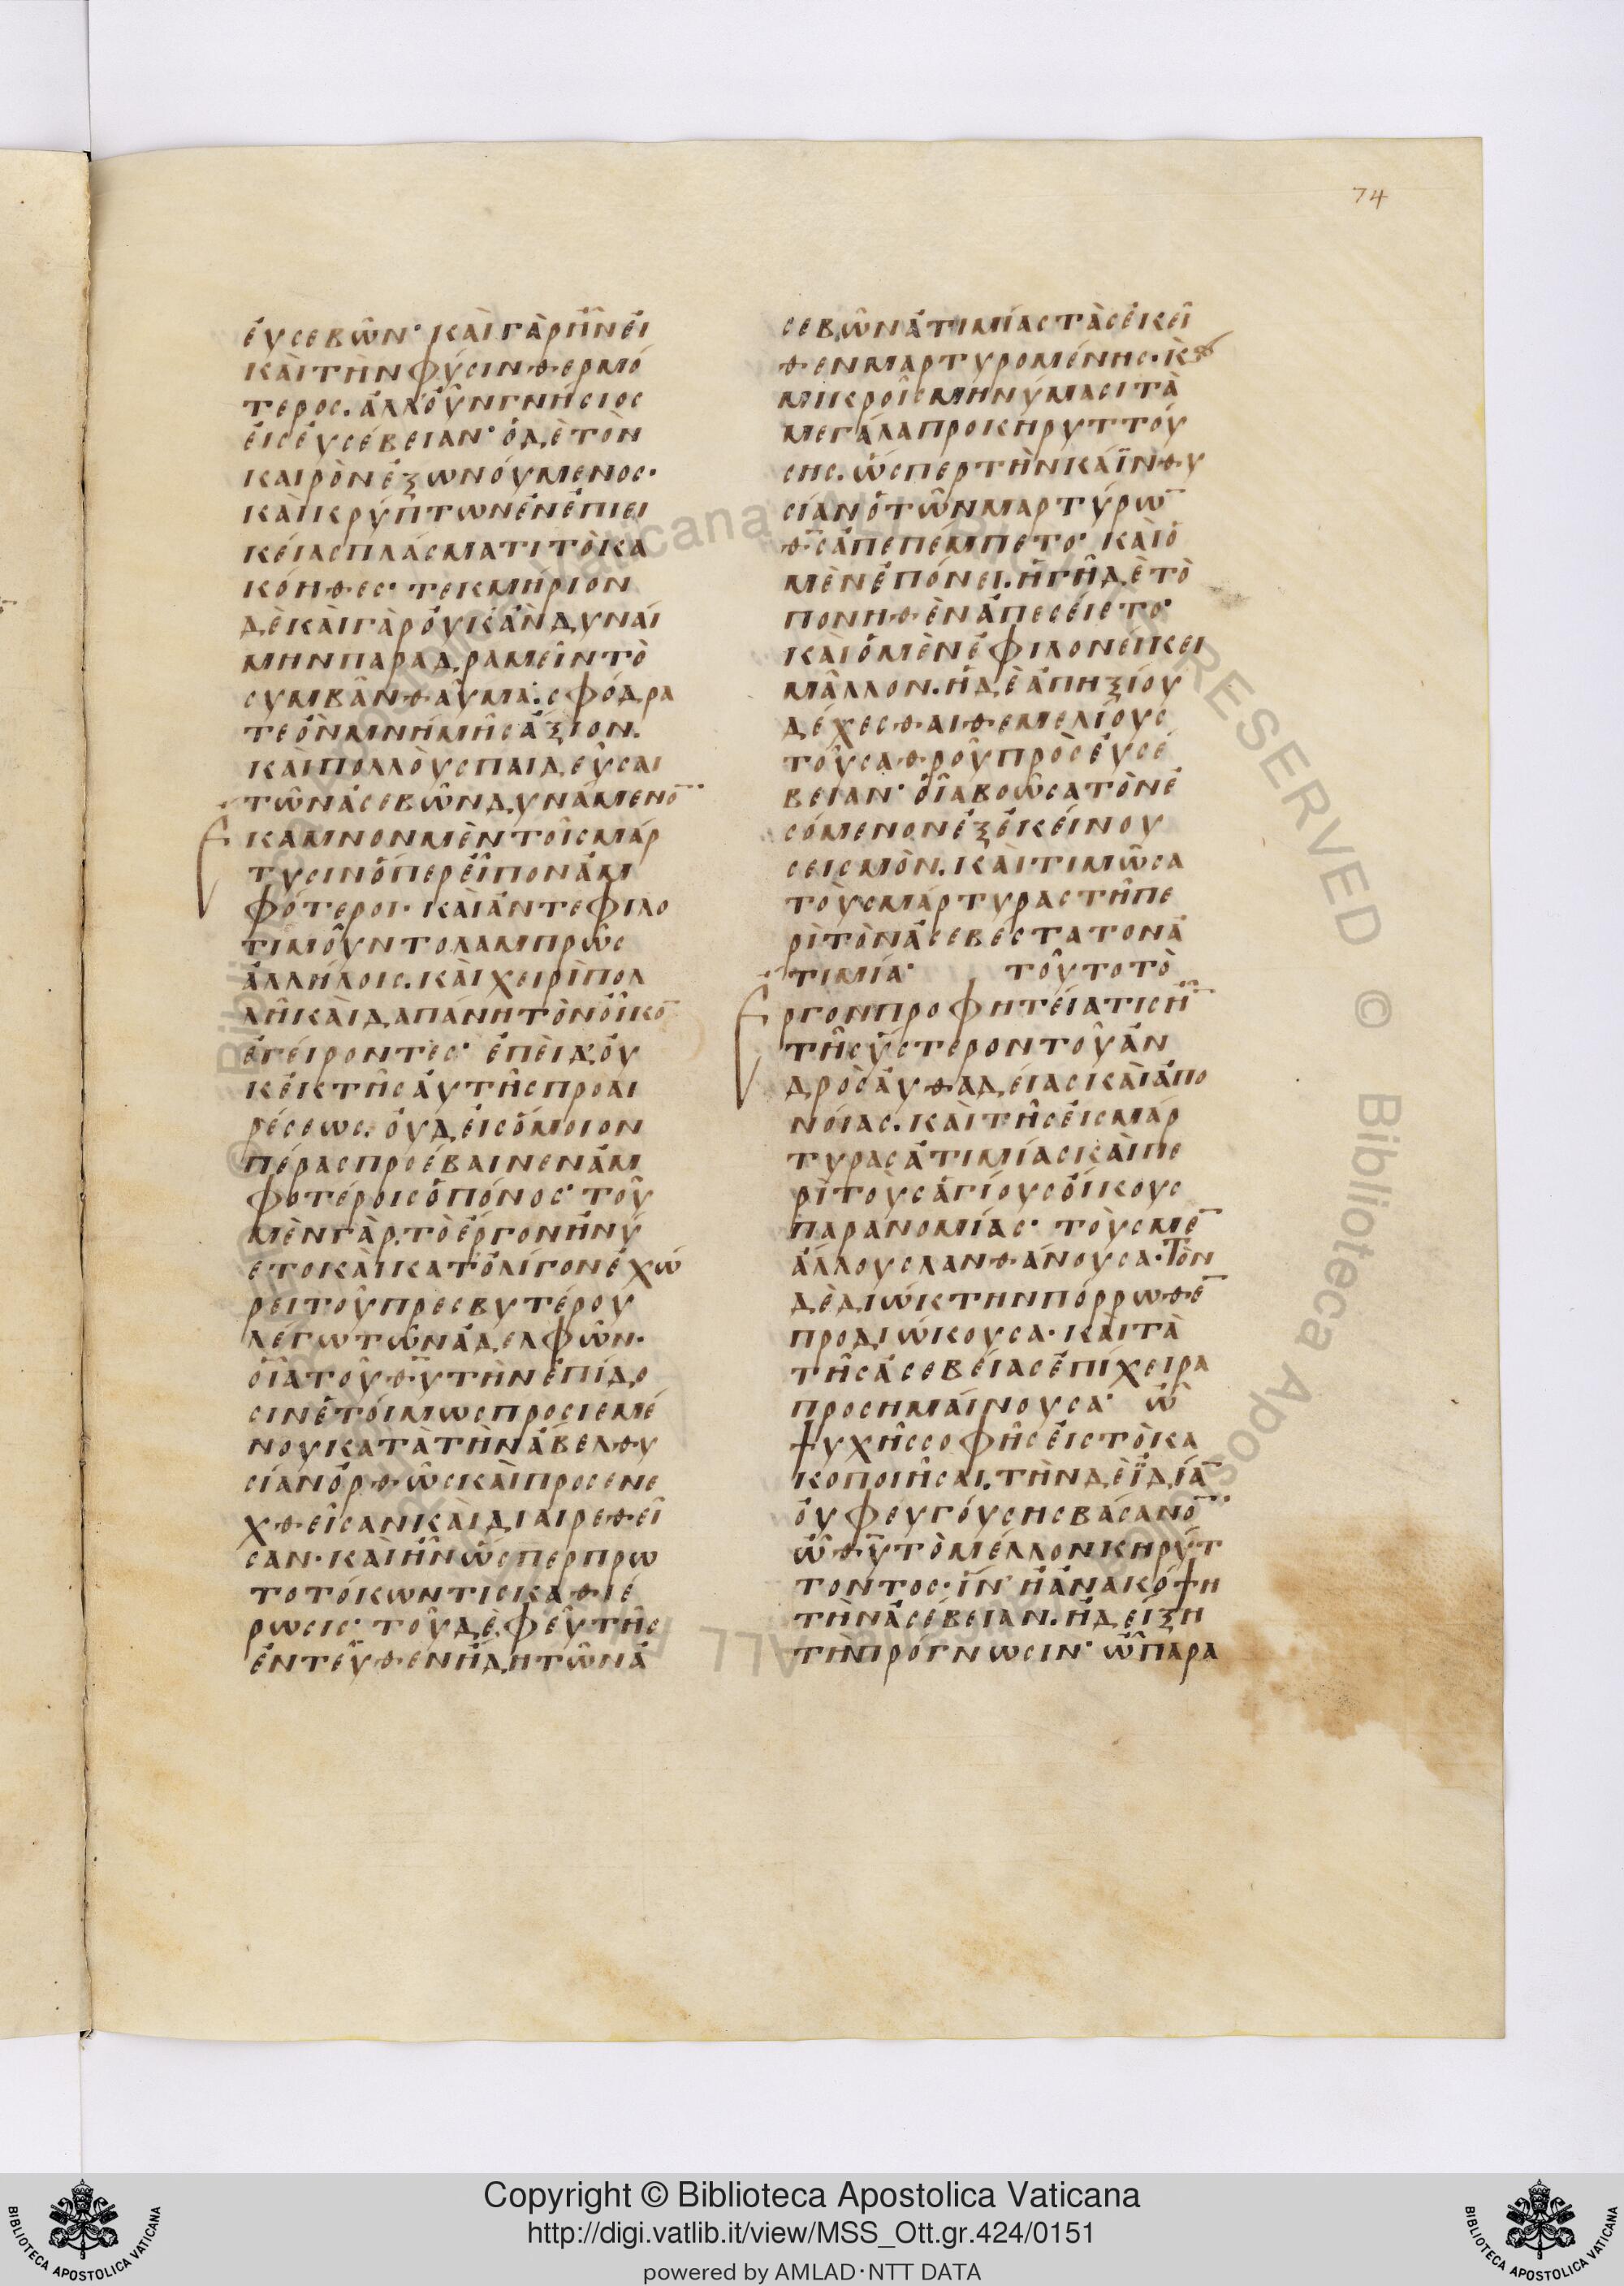 74
ἐυσεβῶν· κὰιγὰρἦνἐι
κὰιτὴνφύσινθερμό
τερος. ἀλλ'ὀῦνγνήσιος
ἐισἐυσέβειαν· ὁδὲτὸν
καιρὸνἐξωνόυμενος·
κὰικρύπτωνἐνἐπιει
κέιασπλάσματιτὸκα
κόηθες· τεκμήριον
δὲκὰιγὰρὀυκἂνδυναί
μηνπαραδραμεῖντὸ
συμβὰνθαῦμα· σφόδρα
τεὸνμνήμησἄξιον.
κὰιπολλὸυσπαιδεῦσαι
τῶνἀσεβῶνδυνάμενο̄·
Ἔκαμνονμὲντοῖσμάρ
τυσινὅπερἐῖπονἀμ
φότεροι· κὰιἀντεφιλο
τιμοῦντολαμπρῶς
ἀλλήλοις. κὰιχειρὶπολ
λῆκὰιδαπάνητὸνὀῖκο̄
ἐγέιροντες· ἐπὲιδ'ὀυ
κἐκτῆσἀυτῆσπροαι
ρέσεως. ὀυδ'ἐισὅμοιον
πέρασπροέβαινενἀμ
φοτέροισὁπόνος· τοῦ
μὲνγὰρ, τὸἔργονἠνύ
ετοκὰικατ'ὀλίγονἐχώ
ρειτοῦπρεσβυτέρου
λέγωτῶνἀδελφῶν·
ὁῖατοῦθῡτὴνἐπίδο
σινἑτόιμωσπροσιεμέ
νουκατὰτὴνἄβελθυ
σίανὀρθῶσκὰιπροσενε
χθεῖσανκὰιδιαιρεθεῖ
σαν· κὰιἦνὥσπερπρω
τοτόκωντισκαθιέ
ρωσις· τοῦδὲ, φεῦτῆς
ἐντεῦθενἤδητῶνἀ
σεβῶνἀτιμίαστὰσἐκεῖ
θενμαρτυρομένης· κὰι
μικροῖσμηνύμασιτὰ
μεγάλαπροκηρυττόυ
σης. ὥσπερτὴνκάϊνθυ
σίανὁτῶνμαρτύρω̄
θ̄σἀπεπέμπετο· κὰιὁ
μὲνἐπόνει. ἡγῆδὲτὸ
πονηθὲνἀπεσέιετο·
κὰιὁμὲνἐφιλονείκει
μᾶλλον. ἡδὲἀπηξίου
δέχεσθαιθεμελίους
τοῦσαθροῦπρὸσἐυσέ
βειαν· ὁῖαβοῶσατὸνἐ
σόμενονἐξἐκείνου
σεισμόν. κὰιτιμῶσα
τὸυσμάρτυραστῆπε
ρὶτὸνἀσεβέστατονἀ
τιμία· τοῦτοτὸ
Ἔργονπροφητέιατισἦ̄
τῆσὕστεροντοῦἀν
δρὸσἀυθαδείασκὰιἀπο
νόιας. κὰιτῆσἐισμάρ
τυρασἀτιμίασκὰιπε
ρὶτὸυσἁγίουσὀίκους
παρανομίας· τὸυσμε̄
ἄλλουσλανθάνουσα· Τὸν
δὲδιώκτηνπόρρωθε̄
προδιώκουσα· κὰιτὰ
τῆσἀσεβέιασἐπίχειρα
προσημαίνουσα· ὢ
ψυχῆσσοφῆσἐιστὸκα
κοποιῆσαι. τὴνδὲἰδίᾱ
ὀυφευγόυσησβάσανο̄·
ὢθῡτὸμέλλονκηρύτ
τοντος· ἵν' ἢἀνακόψη
τὴνἀσέβειαν. ἢδείξη
τὴνπρόγνωσιν· ὢπαρα
Copyright © Biblioteca Apostolica Vaticana
http://digi.vatlib.it/view/MSS_Ott.gr.424/0151
powered by AMLAD·NTT DATA